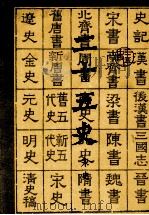 史記 漢書 後漢書 三國志 晉書
宋書 南齊書 梁書 陳書 魏書
二十五史
北齊書 周書 隋書
舊唐書 新唐書 舊五代史 新五代史 宋史
遼史 金史 元史 明史 清史稿